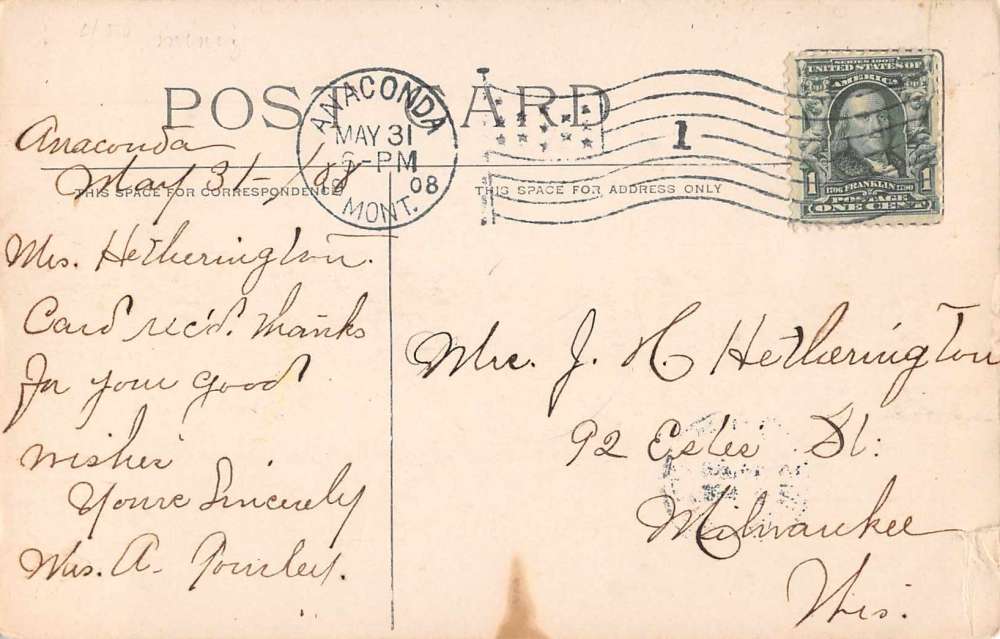 POST CARD
ANACONDA
MAY 31
-PM
08
MONT.
1
SERIES 1902
UNITED STATES OF
AMERICA
1 1706 FRANKLIN 1790 1
POSTAGE
ONE CENT
THIS SPACE FOR CORRESPONDENCE
THIS SPACE FOR ADDRESS ONLY
Anaconda
May 31-/08
Mrs. Hetherington.
Card rec'd. Thanks
for your good
wishes
Yours Sincerely
Mrs. A.
Mrs. J. H. Hetherington
92 Estes St.
Milwaukee
Wis.